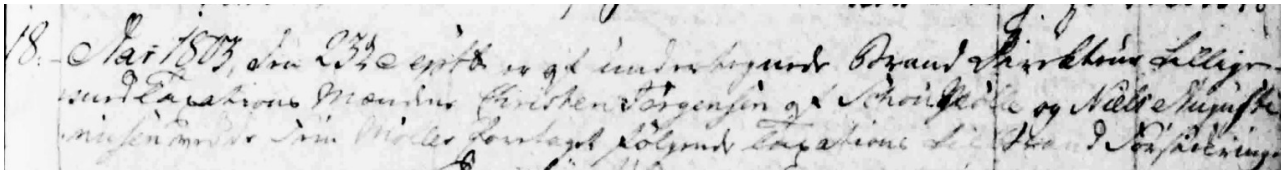 18. Aar 1803, den 23de Septb er af undertegnede Brand Direkteur tillige
med Taxations Mændene Christen Jørgensen af Schou Mølle og Niels Auguste
Mølle foretaget følgende Taxations til Brand Forsikrings